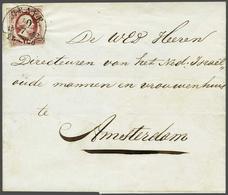 De WED Heeren
Directeuren van het Ned. Israel.
oude mannen en vrouwenhuis
te
Amsterdam